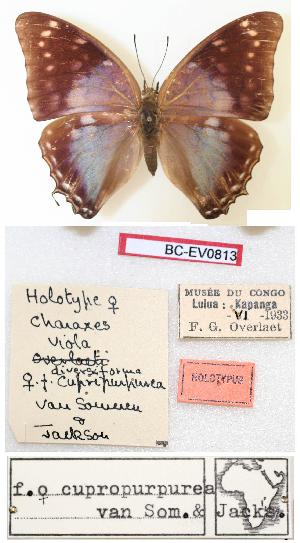 BC-EV0813
Holotype ♀
Charaxes
viola
overlaeti
diversiforma
♀.f. Cupropurpurea
van Someren
&
Jackson
MUSÉE DU CONGO
Lulua : Kapanga
-VI-1933
F. G. Overlaet
HOLOTYPUS
f.♀ cupropurpurea
van Som.& Jacks.